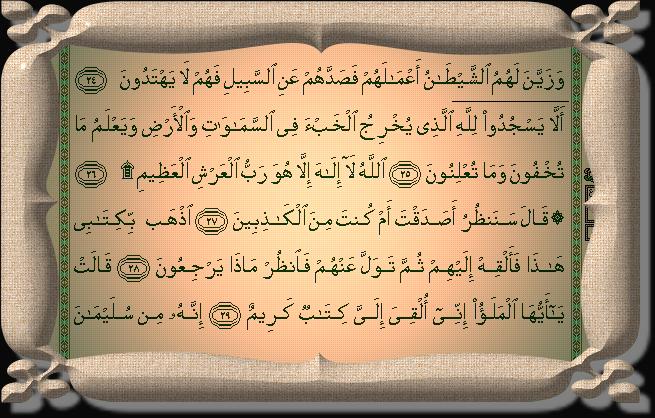 وَزَيَّنَ لَهُمُ ٱلشَّيْطَـٰنُ أَعْمَـٰلَهُمْ فَصَدَّهُمْ عَنِ ٱلسَّبِيلِ فَهُمْ لَا يَهْتَدُونَ ٢٤
أَلَّا يَسْجُدُوا۟ لِلَّهِ ٱلَّذِى يُخْرِجُ ٱلْخَبْءَ فِى ٱلسَّمَـٰوَٰتِ وَٱلْأَرْضِ وَيَعْلَمُ مَا
تُخْفُونَ وَمَا تُعْلِنُونَ ٢٥ ٱللَّهُ لَآ إِلَـٰهَ إِلَّا هُوَ رَبُّ ٱلْعَرْشِ ٱلْعَظِيمِ ۩ ٢٦
۞ قَالَ سَنَنظُرُ أَصَدَقْتَ أَمْ كُنتَ مِنَ ٱلْكَـٰذِبِينَ ٢٧ ٱذْهَب بِّكِتَـٰبِى
هَـٰذَا فَأَلْقِهْ إِلَيْهِمْ ثُمَّ تَوَلَّ عَنْهُمْ فَٱنظُرْ مَاذَا يَرْجِعُونَ ٢٨ قَالَتْ
يَـٰٓأَيُّهَا ٱلْمَلَؤُا۟ إِنِّىٓ أُلْقِىَ إِلَىَّ كِتَـٰبٌ كَرِيمٌ ٢٩ إِنَّهُۥ مِن سُلَيْمَـٰنَ